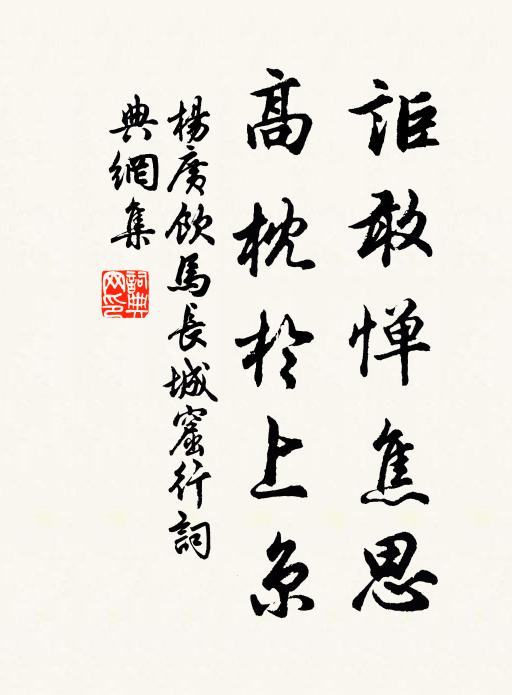 詎敢憚焦思
高枕於上京
楊廣飲馬長城窟行詞
典網集
詞典網印